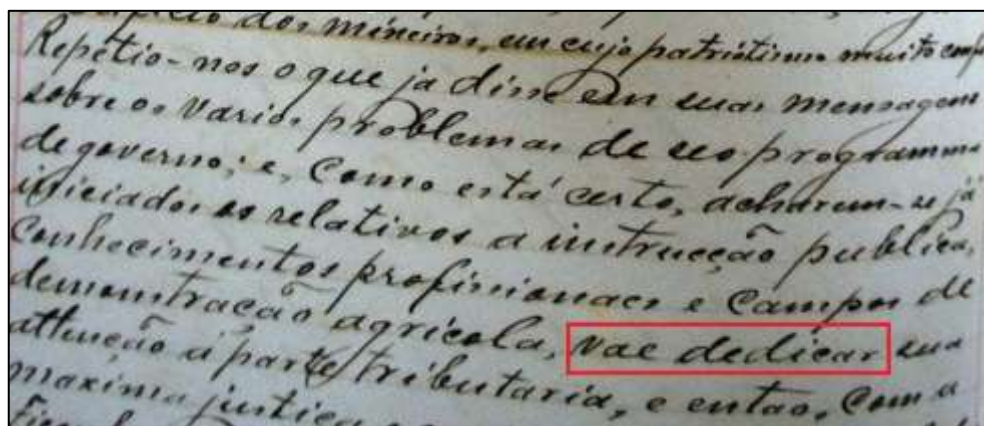 dos mineiros, em cujo patriotismo muito conf
Repetio-nos o que ja disse em suas mensagens
sobre os varios problemas de seo programma
de governo; e, como está certo, acharem-se já
iniciados os relativos a instrucção publica,
conhecimentos profissionaes e campos de
demonstração agricola, vae dedicar sua
attenção á parte tributaria, e então, com a
maxima justiça